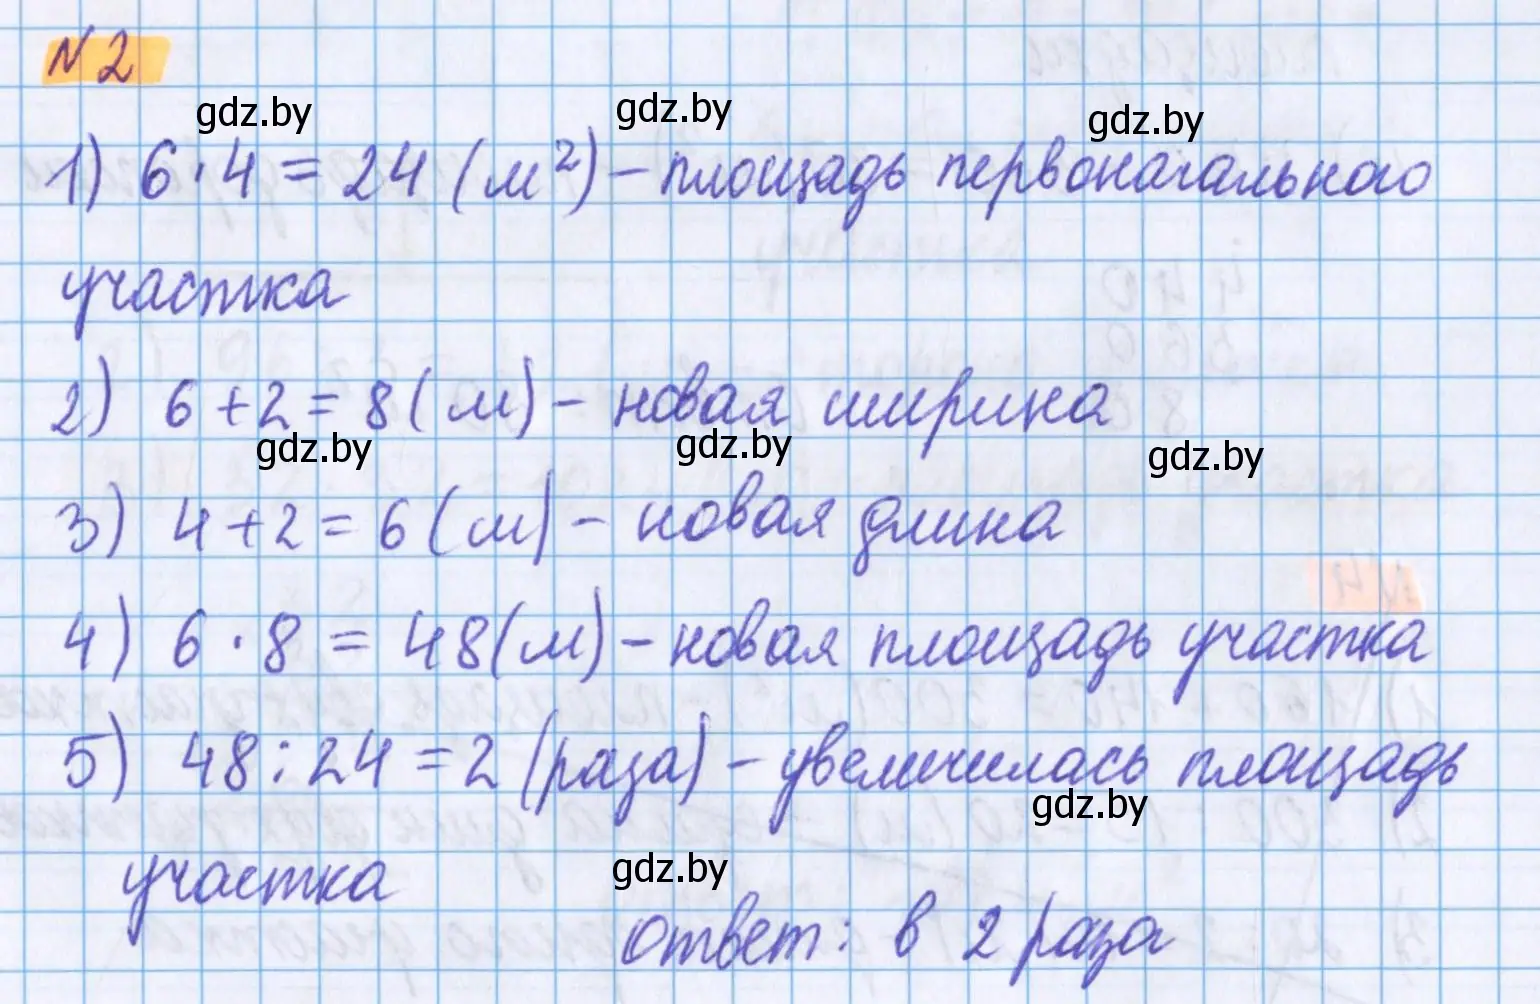 №2
gdz.by gdz.by gdz.by
1) 6 · 4 = 24 (м²) – площадь первоначального
участка
2) 6 + 2 = 8 (м) – новая ширина
gdz.by gdz.by gdz.by
3) 4 + 2 = 6 (м) – новая длина
4) 6 · 8 = 48 (м) – новая площадь участка
5) 48 : 24 = 2 (раза) – увеличилась площадь
gdz.by
участка
gdz.by
ответ: в 2 раза